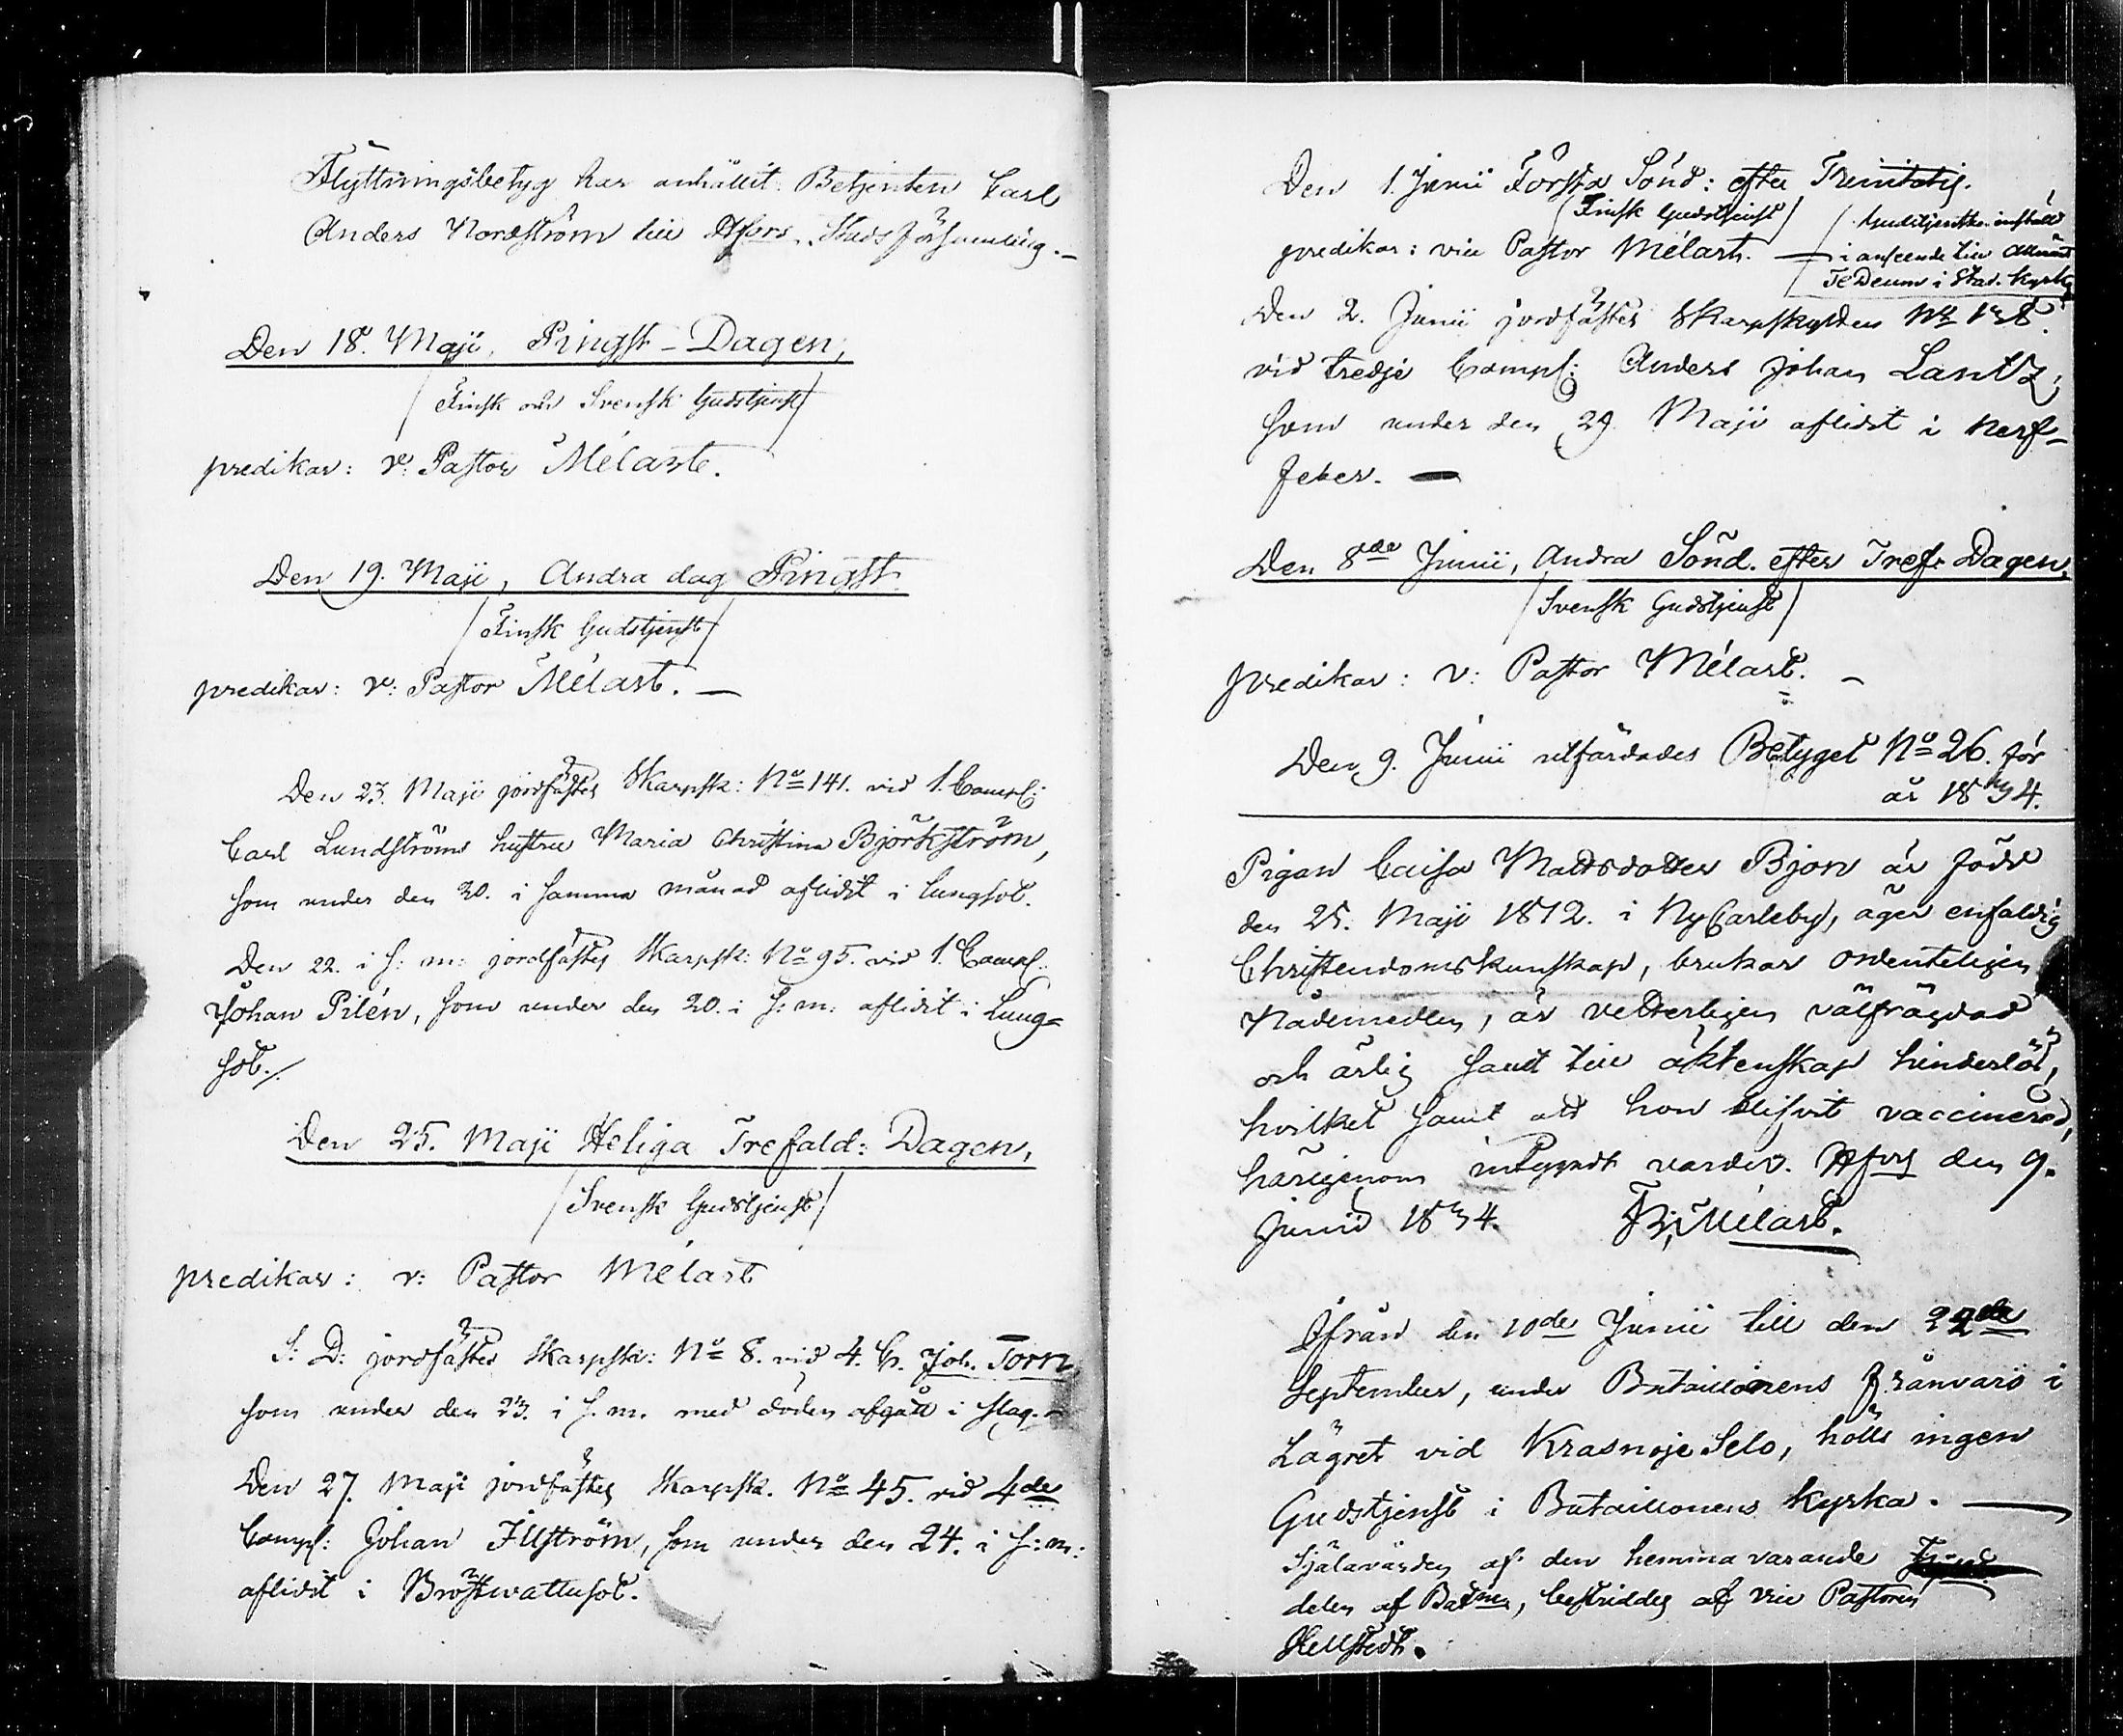 Flyttningsbetyg har anhållit Betjenten Carl
Anders Nordström till Hfors Stads församling.
Den 18. Maji, Pingst-Dagen,
/Finsk och Svensk Gudstjenst/
predikar: v: Pastor Mélart.
Den 19. Maji, Andra dag Pingst
/Finsk Gudstjenst/
predikar: v: Pastor Mélart. —
Den 23. Maji jordfästes Skarpsk: No 141. vid 1. Comp:
Carl Lundströms hustru Maria Christina Björkström,
som under den 20. i samma månad aflidit i lungsot.
Den 22. i s: m: jordfästes Skarpsk: No 95. vid 1. Comp:
Johan Pilén, som under den 20. i s: m: aflidit i Lung=
sot./.
Den 25. Maji Heliga Trefald: Dagen,
/Svensk Gudstjenst/
predikar: v: Pastor Mélart
S: D: jordfästes Skarpsk: No 8. vid 4. C. Joh. Torn
som under den 23. i s. m. med döden afgått i slag. —
Den 27. Maji jordfästes Skarpsk. No 45. vid 4de
Comp: Johan Illström, som under den 24. i s: m:
aflidit i Bröstwattusot.
Den 1. Junii Första Sönd: efter Trinitatis.
/Finsk Gudstjenst/
/Gudstjensten inställd
predikar: vice Pastor Mélart. —
i anseende till allmänt
Te Deum i Stad. Kyrka
Den 2. Junii jordfästes Skarpskytten No 138.
vid tredje Comp: Anders Johan Lantz,
som under den 29. Maji aflidit i Nerf-
feber. —
Den 8de Junii, Andra Sönd. efter Tref. Dagen,
/Svensk Gudstjenst/
predikar: v: Pastor Mélart. —
Den 9. Junii utfärdades Betyget No 26. för
år 1834.
Pigan Caisa Mattsdotter Bjon är född
den 25. Maji 1812. i NyCarleby, äger enfaldig
Christendomskunskap, brukar ordenteligen
Nådemedlen, är vetterligen välfrägdad
och ärlig samt till äktenskap hinderlös,
hvilket samt att hon blifvit vaccinerad,
härigenom intygadt varder. Hfors den 9.
Junii 1834. Mélart.
Ifrån den 10de Junii till den 22de
September, under Bataillonens frånvaro i
Lägret vid Krasnoje Selo, hölls ingen
Gudstjenst i Bataillonens kyrka. —
Själavården af den hemma varande
delen af Batnen, bestriddes af vice Pastoren
Hellstedt.